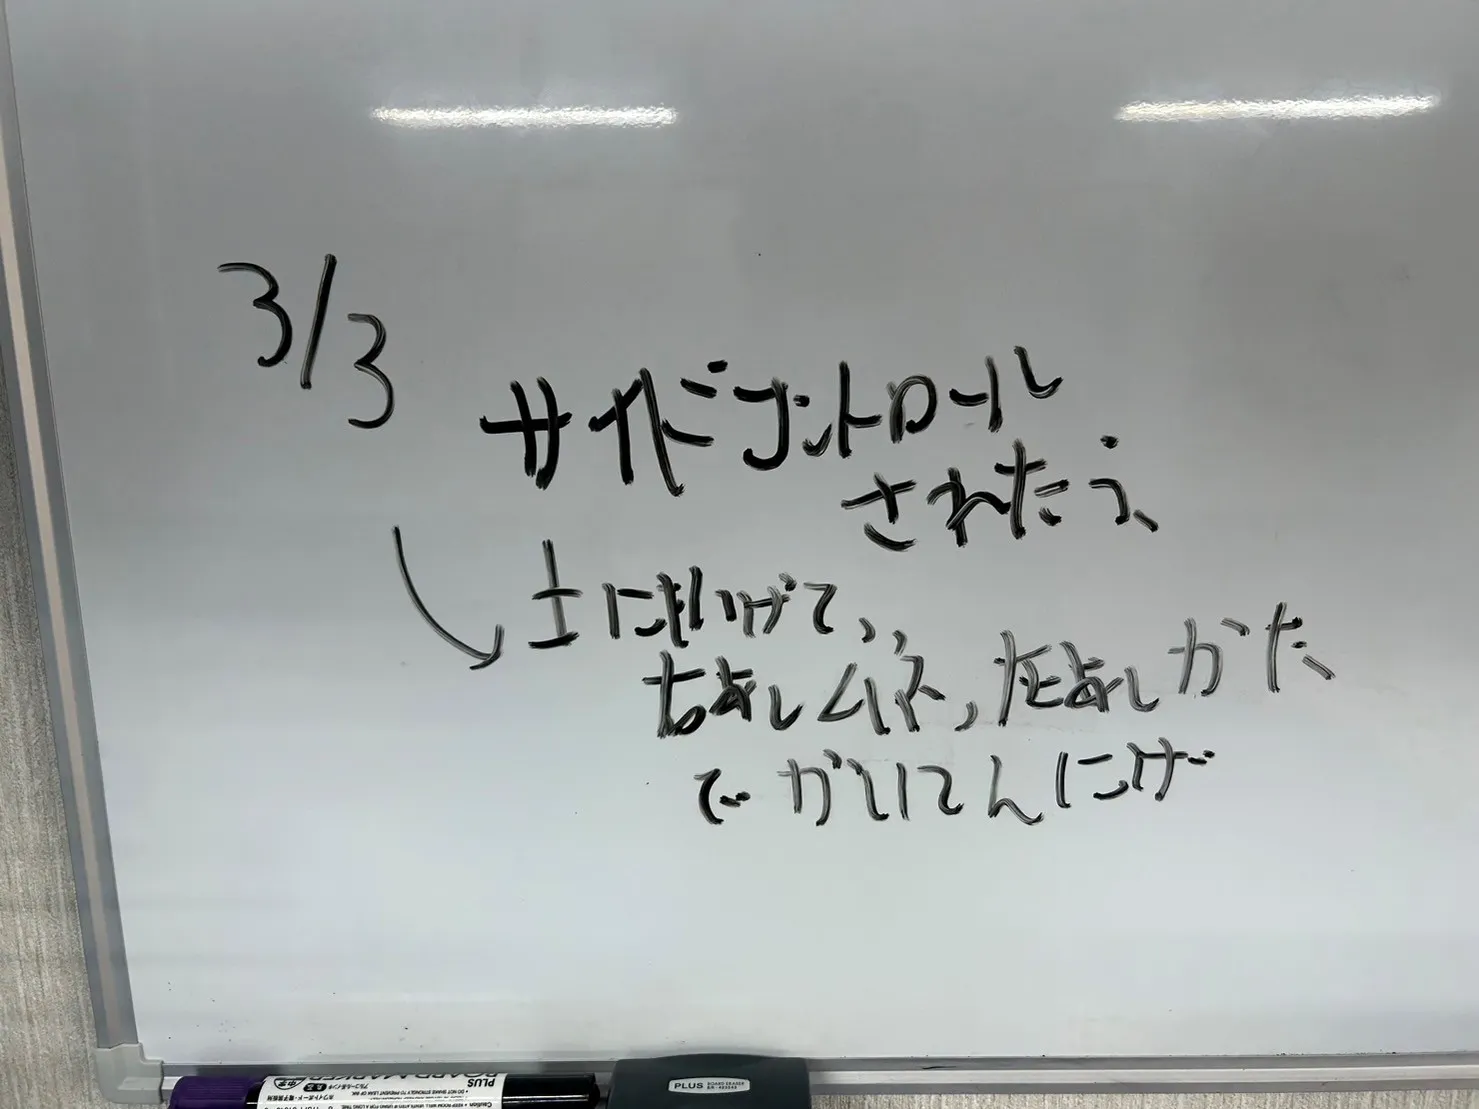 3/3
サイドコントロール
されたら、
上にもにげて、、
右あしムネ、左あしかた、
でかいてんにげ
PLUS
BOARD MARKER
PLUS
BOARD ERASER